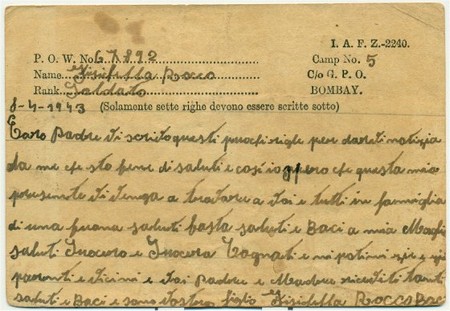 I. A. F. Z.-2240.
P. O. W. No. 67892
Camp No. 5
Name Fisifella Rocco
C/o G. P. O.
Rank Soldato
BOMBAY.
8-4-1943 (Solamente sette righe devono essere scritte sotto)
Caro Padre ti scrito questi puochi righe per darti notizia
da me che sto bene di saluti e così io spero che questa mia
presente ti tenga a trovare a Toi e tutti in famiglia
di una buona saluti basta saluti e Baci a mia Moglie
saluti Suocero e Suocera Cognati e nipotini
parenti e Vicini e Toi Padre e Madre riceviti tanti
saluti e Baci e sono vostro figlio Fisifella Rocco Baci